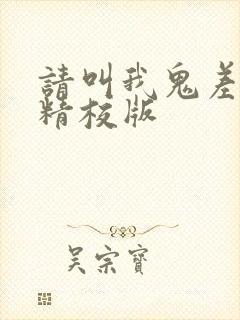 請叫我鬼差
精校版
吴宗寶